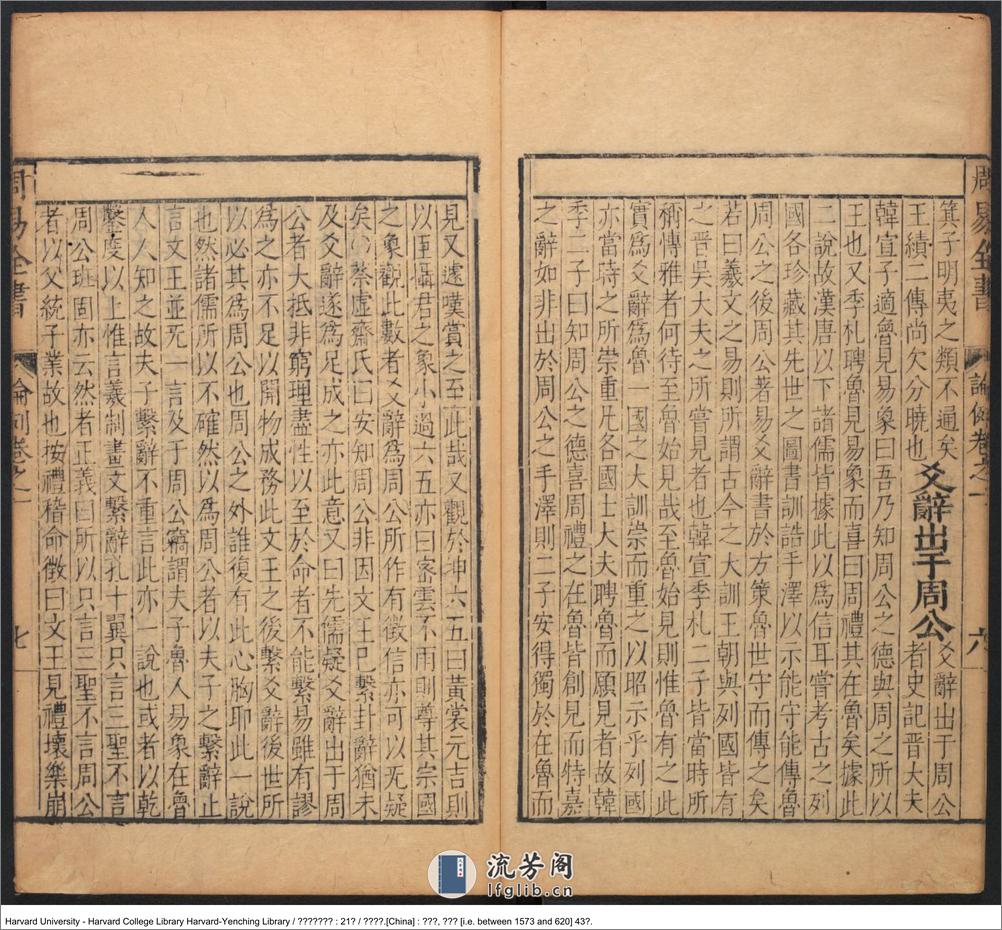 周易全書
論例卷之一
六
箕子明夷之類不通矣
王績二傳尚欠分曉也
爻辭出于周公
爻辭出于周公
者史記晉大夫
韓宣子適魯見易象曰吾乃知周公之德與周之所以
王也又季札聘魯見易象而喜曰周禮其在魯矣據此
二說故漢唐以下諸儒皆據此以為信耳嘗考古之列
國各珍藏其先世之圖書訓誥手澤以示能守能傳魯
周公之後周公著易爻辭書於方策魯世守而傳之矣
若曰羲文之易則所謂古今之大訓王朝與列國皆有
之晉吳大夫之所嘗見者也韓宣季札二子皆當時所
稱博雅者何待至魯始見哉至魯始見則惟魯有之此
實爲爻辭爲魯一國之大訓崇而重之以昭示乎列國
亦當時之所崇重凡各國士大夫聘魯而願見者故韓
季二子曰知周公之德喜周禮之在魯皆創見而特嘉
之辭如非出於周公之手澤則二子安得獨於在魯而
見又遽嘆賞之至此哉又觀於坤六五曰黃裳元吉則
以臣攝君之象小過六五亦曰密雲不雨則尊其宗國
之象觀此數者爻辭爲周公所作有徵信亦可以无疑
矣○蔡虛齋氏曰安知周公非因文王已繫卦辭猶未
及爻辭遂爲足成之亦此意又曰先儒疑爻辭出于周
公者大抵非窮理盡性以至於命者不能繫易雖有謬
為之亦不足以開物成務此文王之後繫爻辭後世所
以必其爲周公也周公之外誰復有此心胸耶此一說
也然諸儒所以不確然以爲周公者以夫子之繫辭止
言文王並无一言及于周公竊謂夫子魯人易象在魯
人人知之故夫子繫辭不重言此亦一說也或者以乾
鑿度以上惟言羲制畫文繫辭孔十翼只言三聖不言
周公班固亦云然者正義曰所以只言三聖不言周公
者以父統子業故也按禮稽命徵曰文王見禮壞樂崩
周易全書
論例卷之一
七
流芳阁
lfglib.cn
Harvard University - Harvard College Library Harvard-Yenching Library / ??????? : 21? / ????.[China] : ???, ??? [i.e. between 1573 and 620] 43?.